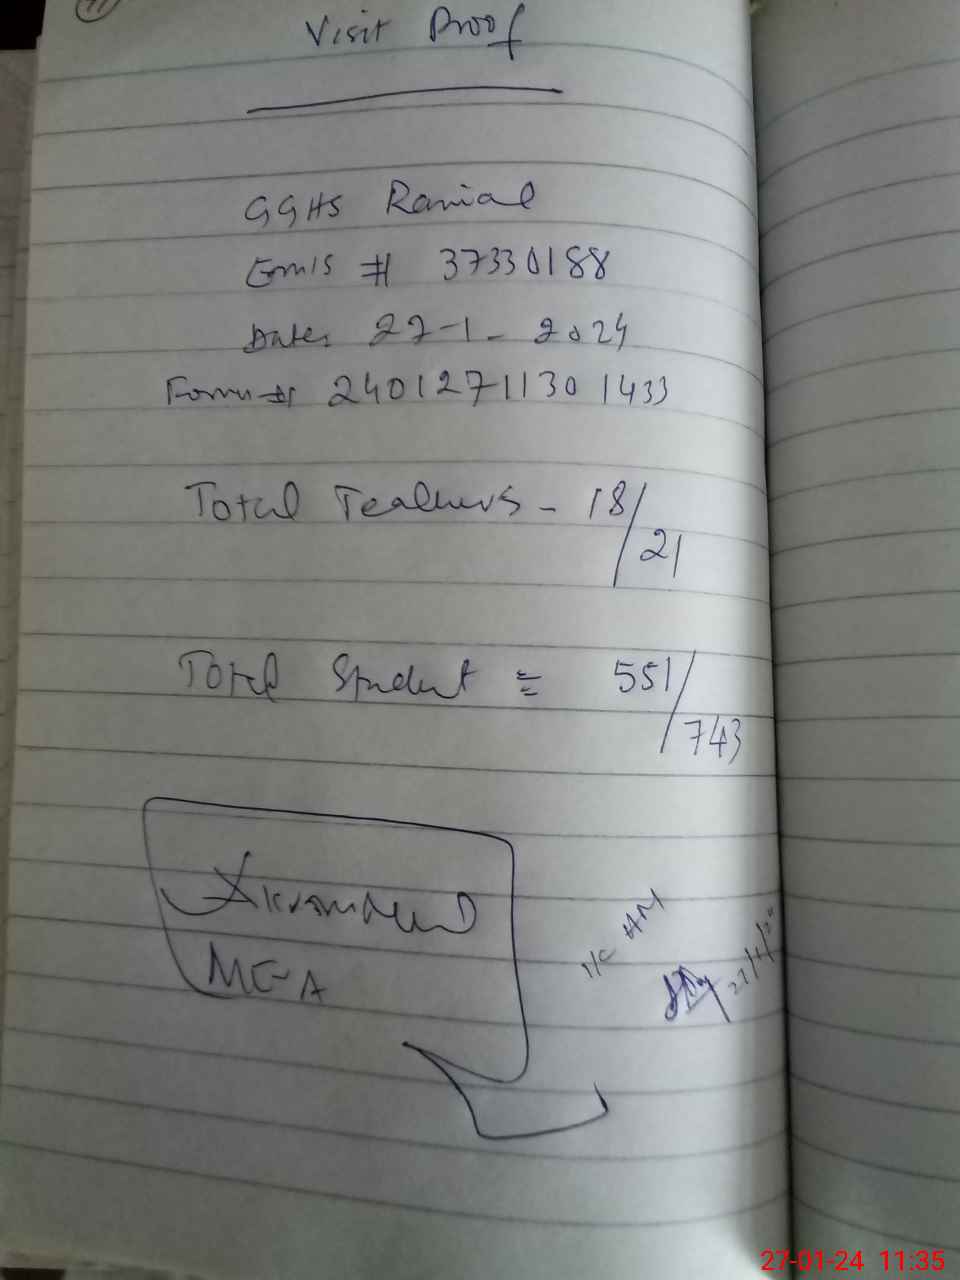 Visit Proof
GGHS Ranial
Emis # 37330188
Date: 27-1-2024
Form # 2401271130 1433
Total Teachers - 18/21
Total Student = 551/743
MEA
I/C HM
27-01-24 11:35